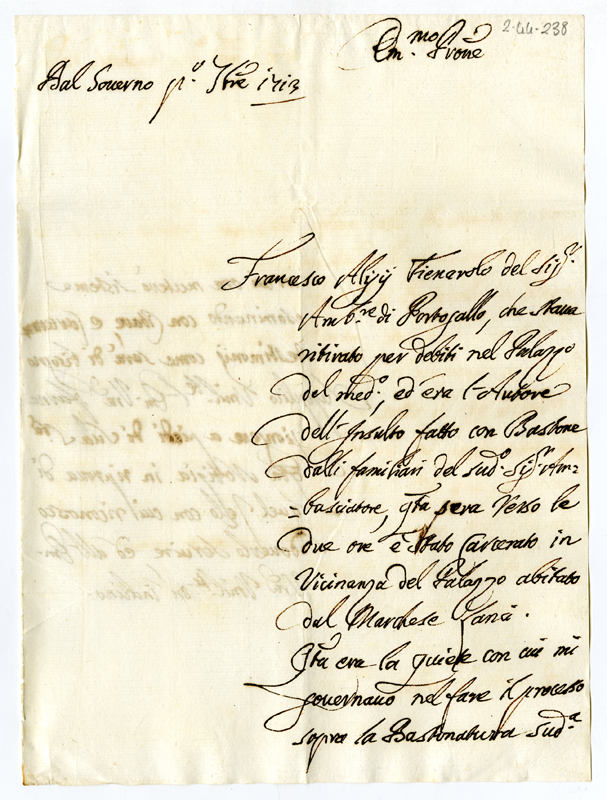 2-44-238
Em.mo Prone
Dal Governo p.o 7bre 1713
Francesco Alisij Fienarolo del Sig.r
Amb.re di Portogallo, che staua
ritirato per debiti nel Palazzo
del med.o, ed era l'Autore
dell'Insulto fatto con Bastone
dalli familiari del sud.o Sig.r Am=
=basciatore, q.ta sera verso le
due ore è stato Carcerato in
Vicinanza del Palazzo abitato
dal Marchese
Q.ta era la quiete con cui mi
gouernauo nel fare il processo
sopra la Bastonatura sud.a